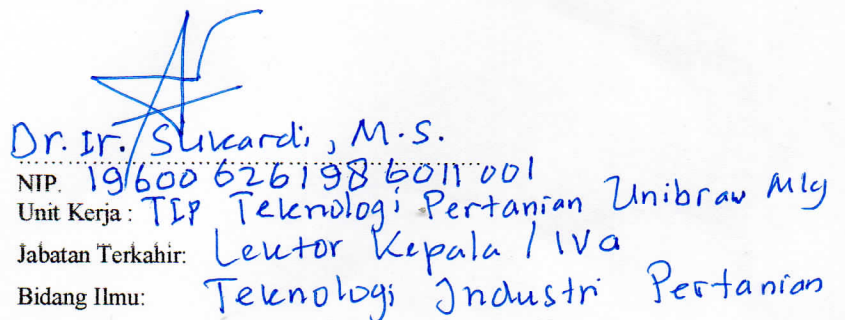 Dr. Ir. Sukardi, M.S.
NIP. 19600626198601 1 001
Unit Kerja : TIP Teknologi Pertanian Unibraw Mlg
Jabatan Terkahir: Lektor Kepala / IVa
Bidang Ilmu: Teknologi Industri Pertanian